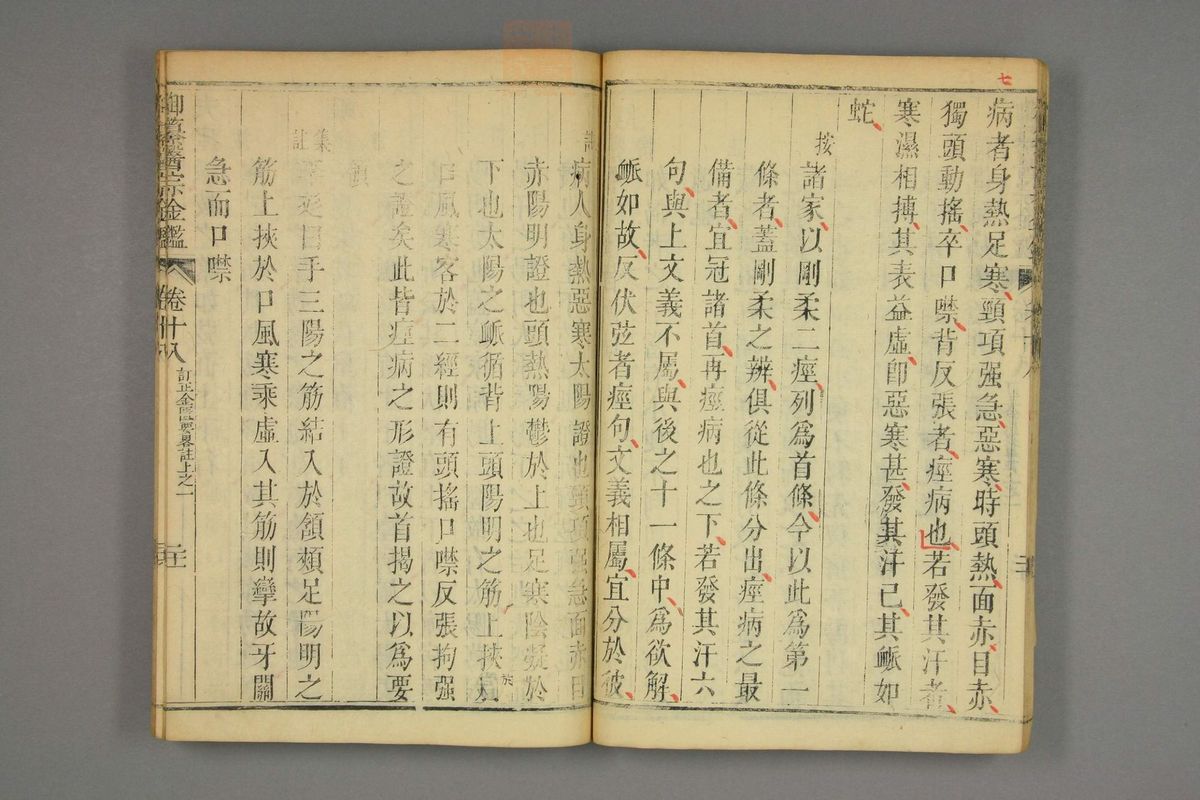 七
病者身熱足寒頸項强急惡寒時頭熱面赤目赤
獨頭動搖卒口噤背反張者痙病也若發其汗者
寒濕相搏其表益虛卽惡寒甚發其汗已其衇如
蛇
按
諸家以剛柔二痙列爲首條今以此爲第一
條者蓋剛柔之辨俱從此條分出痙病之最
備者宜冠諸首再痙病也之下若發其汗六
句與上文義不屬與後之十一條中爲欲解
衇如故反伏弦者痙句文義相屬宜分於彼
註
病人身熱惡寒太陽證也頸項强急面赤目
赤陽明證也頭熱陽鬱於上也足寒陰凝於
下也太陽之衇循背上頭陽明之筋上挾
於
口風寒客於二經則有頭搖口噤反張拘强
之證矣此皆痙病之形證故首揭之以爲要
領
集
註
曰手三陽之筋結入於頷頰足陽明之
筋上挾於口風寒乘虛入其筋則攣故牙關
急而口噤
御纂醫宗金鑑 卷十八 訂正金匱要畧註上之一